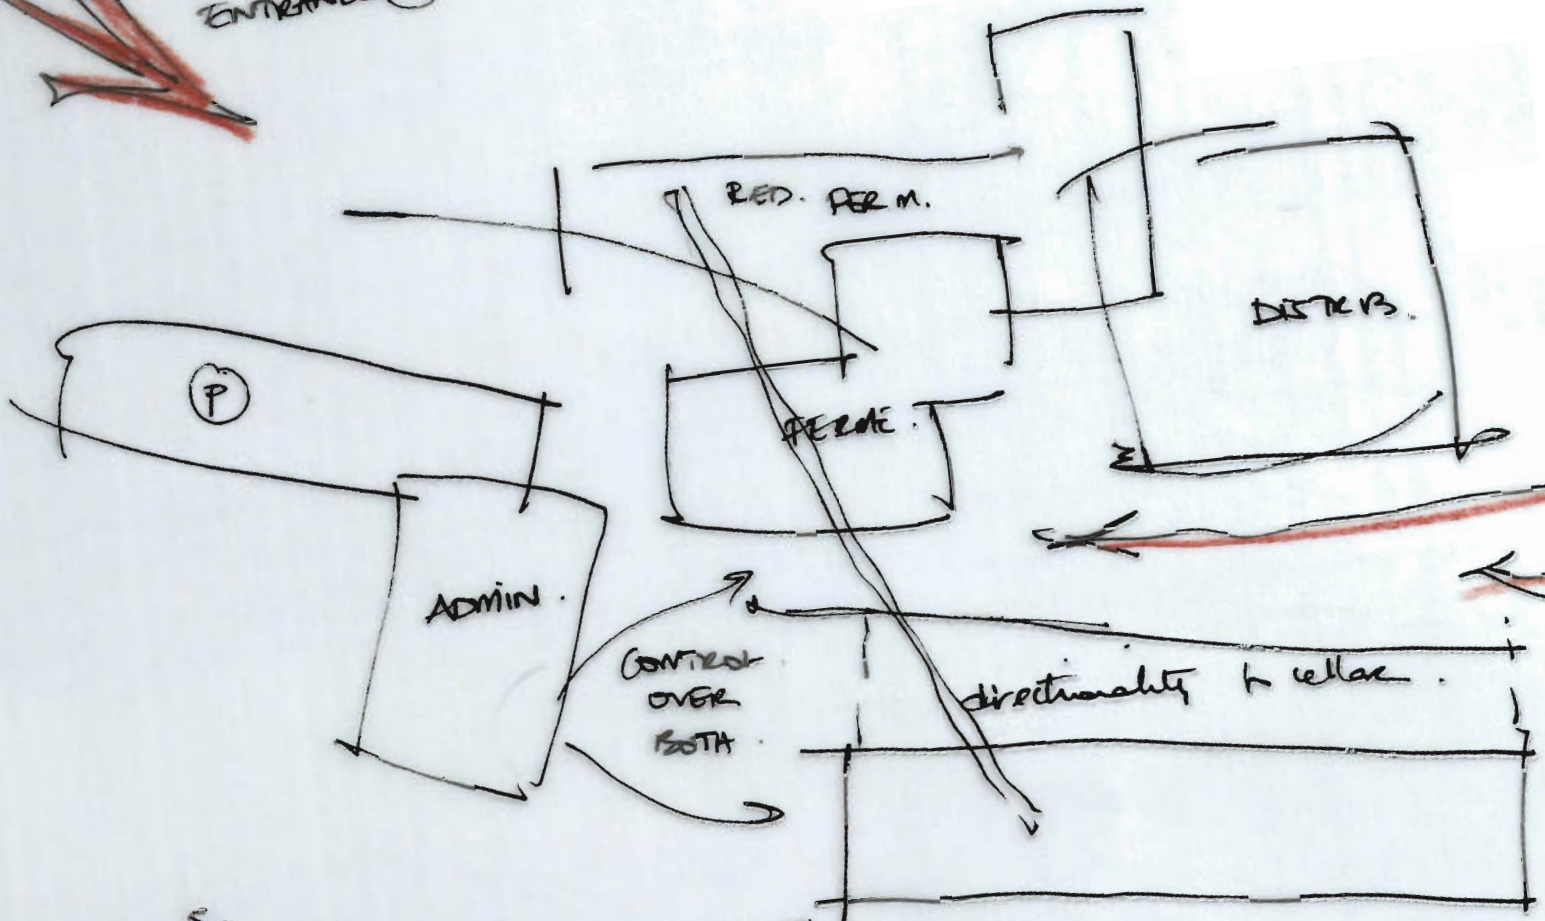 ENTRANCE
RED. FERM.
DISTRIB.
P
FERME.
ADMIN.
CONTROL
OVER
BOTH.
directionality to cellar.